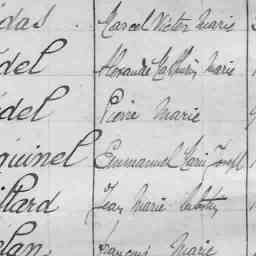 das. Marcel Victor Marie
del Alexandre Mathurin Marie
del Pierre Marie
quinel Emmanuel Marie Joseph
llard Jean Marie
lan François Marie